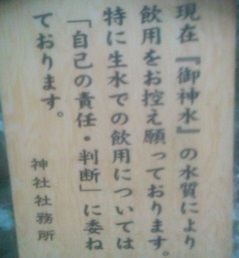 現在『御神水』の水質により
飲用をお控え願っております。
特に生水での飲用については
「自己の責任・判断」に委ね
ております。
神社社務所